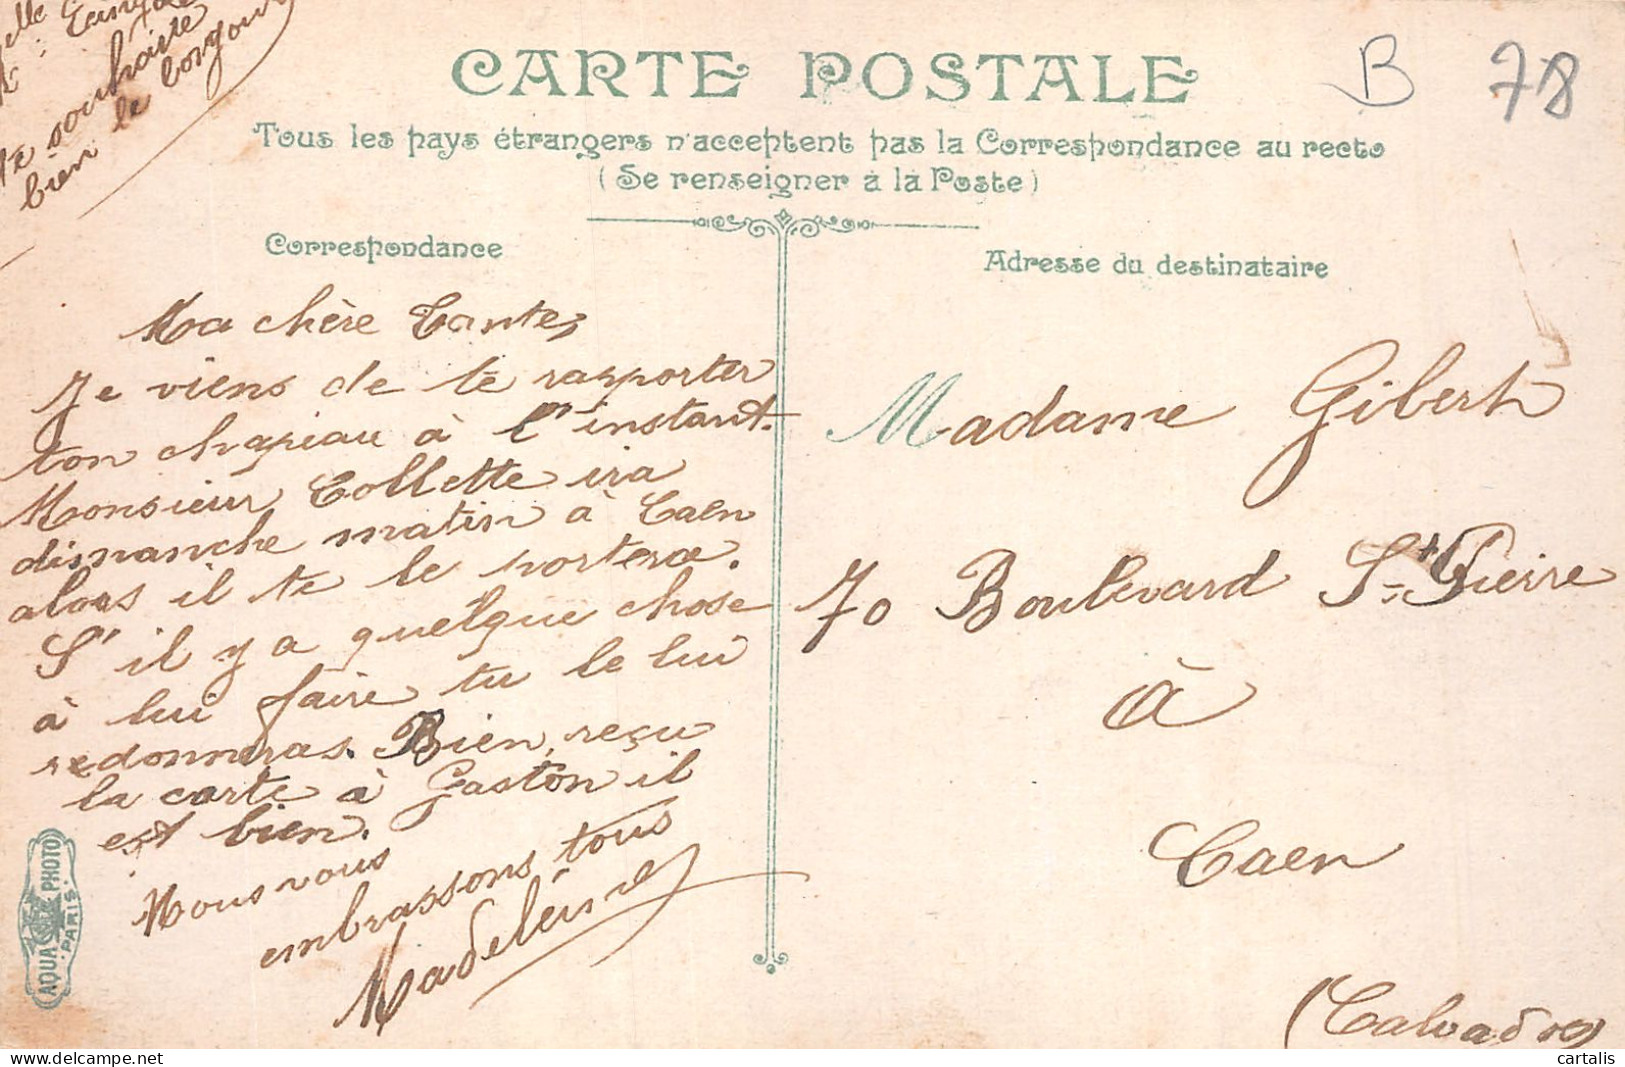 CARTE POSTALE
Tous les pays étrangers n'acceptent pas la Correspondance au recto
(Se renseigner à la Poste)
B
78
te souhaite
bien le bonjour
Correspondance
Ma chère Tante,
Je viens de te rapporter
ton chapeau à l'instant.
Monsieur Collette ira
dimanche matin à Caen
alors il te le portera.
S'il y a quelque chose
à lui faire tu le lui
redonneras. Bien reçu
la carte à Gaston il
est bien.
Nous vous
embrassons tous
Madeleine
Adresse du destinataire
Madame Gibert
70 Boulevard St Pierre
à
Caen
(Calvados)
AQUA PHOTO
PARIS
cartalis